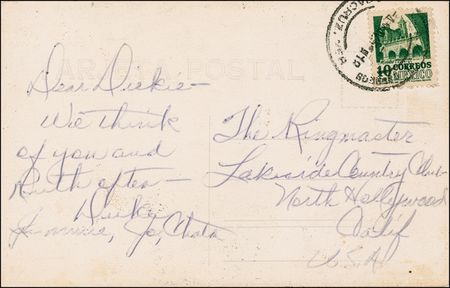 TARJETA POSTAL
VERACRUZ, VER.
10 CORREOS
MEXICO
Dear Dickie—
We think
of you and
Ruth often—
Duke,
Jo, Chata
The Ringmaster
Lakeside Country Club
North Hollywood
Calif
U.S.A.